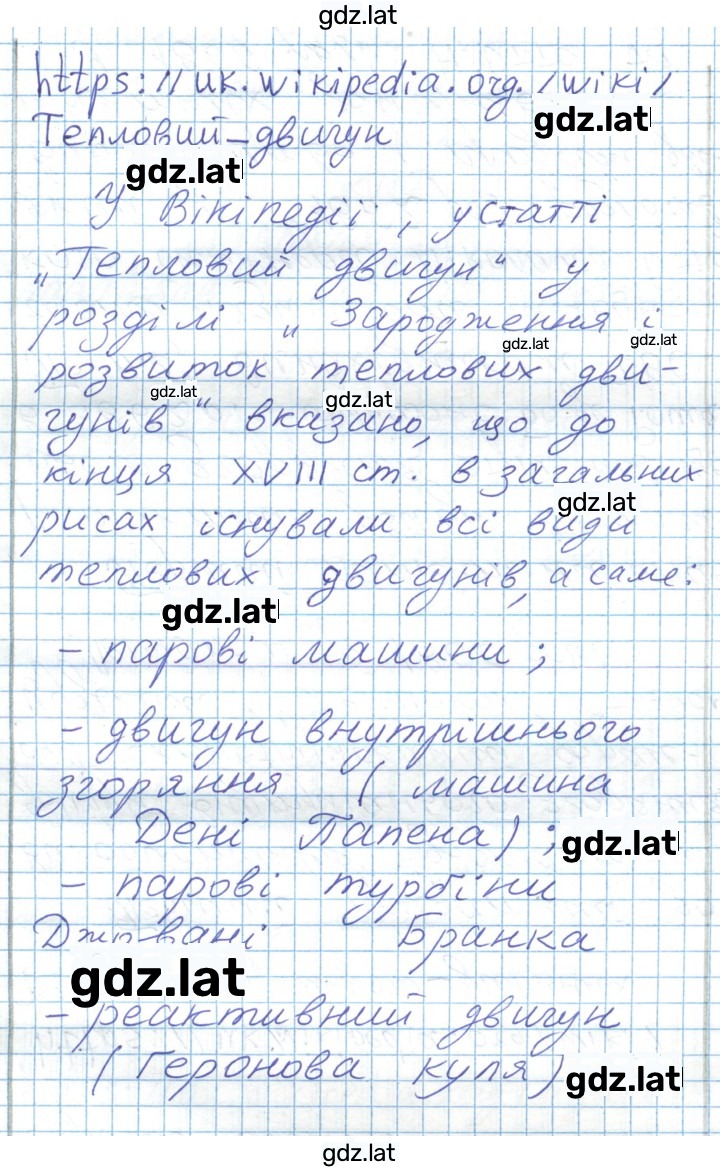 gdz.lat
https://uk.wikipedia.org./wiki/
gdz.lat
Тепловий_двигун
gdz.lat
У Вікіпедії, у статті
„Тепловий двигун“ у
розділі „Зародження і
gdz.lat gdz.lat
розвиток теплових дви-
gdz.lat gdz.lat
гунів“ вказано, що до
кінця XVIII ст. в загальних
gdz.lat
рисах існували всі види
теплових двигунів, а саме:
gdz.lat
- парові машини;
- двигун внутрішнього
згоряння (машина
Дені Папена);
gdz.lat
- парові турбіни
Джовані Бранка
gdz.lat
- реактивний двигун
(Геронова куля)
gdz.lat
gdz.lat